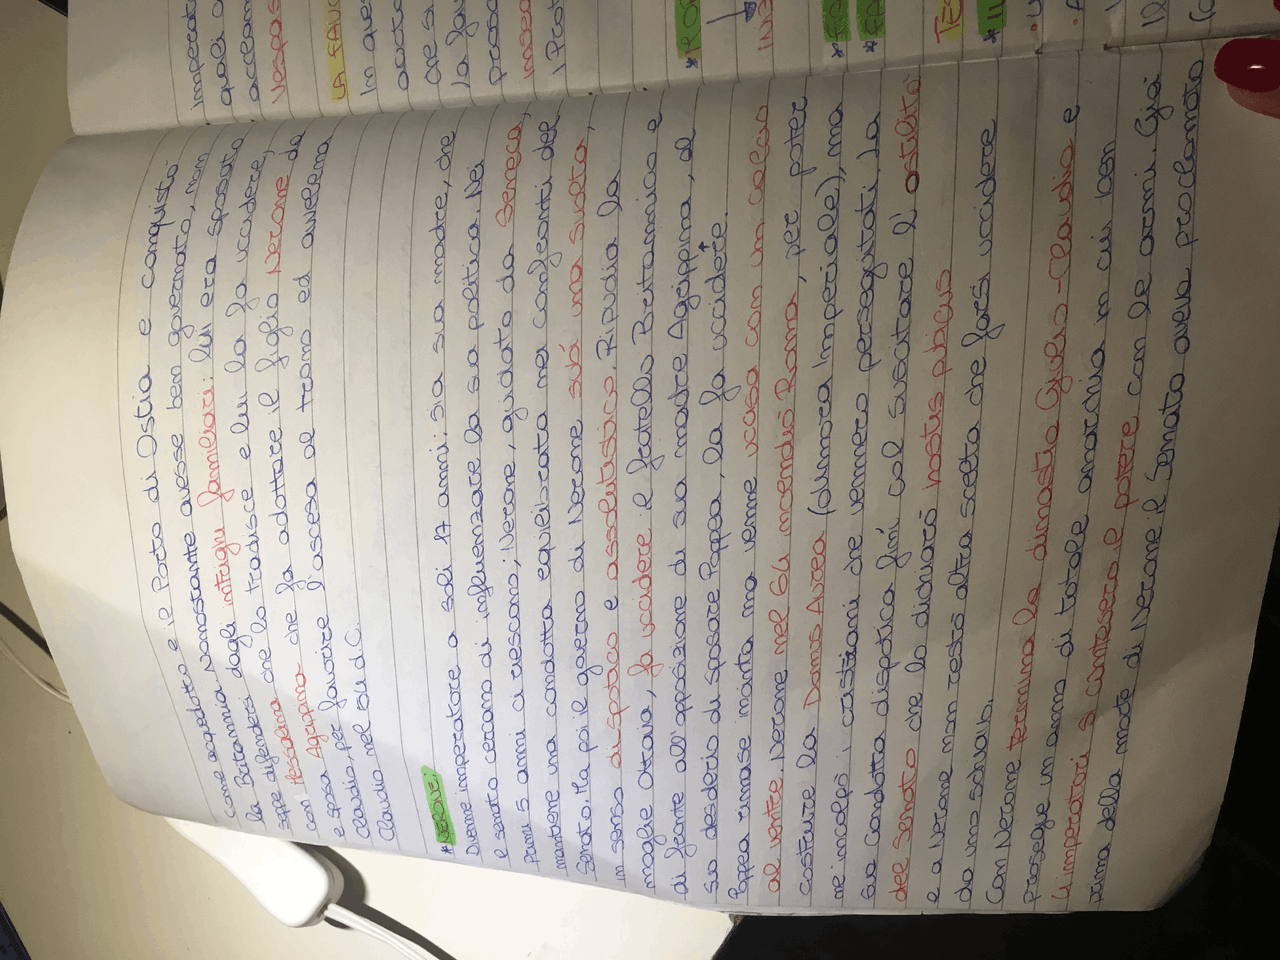 come acquedotto e il Porto di Ostia e conquistò
la Britannia. Nonostante avesse ben governato, non
seppe difendersi dagli intrighi familiari: lui era sposato
con Messalina che lo tradisce e lui la fa uccidere,
e sposa Agrippina che fa adottare il figlio Nerone da
Claudio, per favorire l'ascesa al trono ed avvelena
Claudio nel 54 d.C.
*NERONE:
Venne imperatore a soli 17 anni; sia sua madre, che
il senato cercano di influenzare la sua politica. Nei
primi 5 anni ci riescono; Nerone, guidato da Seneca,
mantiene una condotta equilibrata nei confronti del
Senato. Ma poi il governo di Nerone subì una svolta,
in senso dispotico e assolutistico. Ripudia la
moglie Ottavia, fa uccidere il fratello Britannico e
di fronte all'opposizione di sua madre Agrippina, al
suo desiderio di sposare Poppea, la fa uccidere.
Poppea rimase incinta ma venne uccisa con un calcio
al ventre. Nerone nel 64 incendiò Roma, per poter
costruire la Domus Aurea (dimora Imperiale), ma
ne incolpò i cristiani che vennero perseguitati. La
sua condotta dispotica finì col suscitare l'ostilità
del senato che lo dichiarò hostis publicus
e a Nerone non restò altra scelta che farsi uccidere
da uno schiavo.
Con Nerone termina la dinastia Giulio-Claudia e
prosegue un anno di totale anarchia in cui ben
4 imperatori si contesero il potere con le armi. Già
prima della morte di Nerone il Senato aveva proclamato
Imperat
quali
acclam
Vespas
LA FAVO
In ques
che s
La fa
possa
insed
I Pot